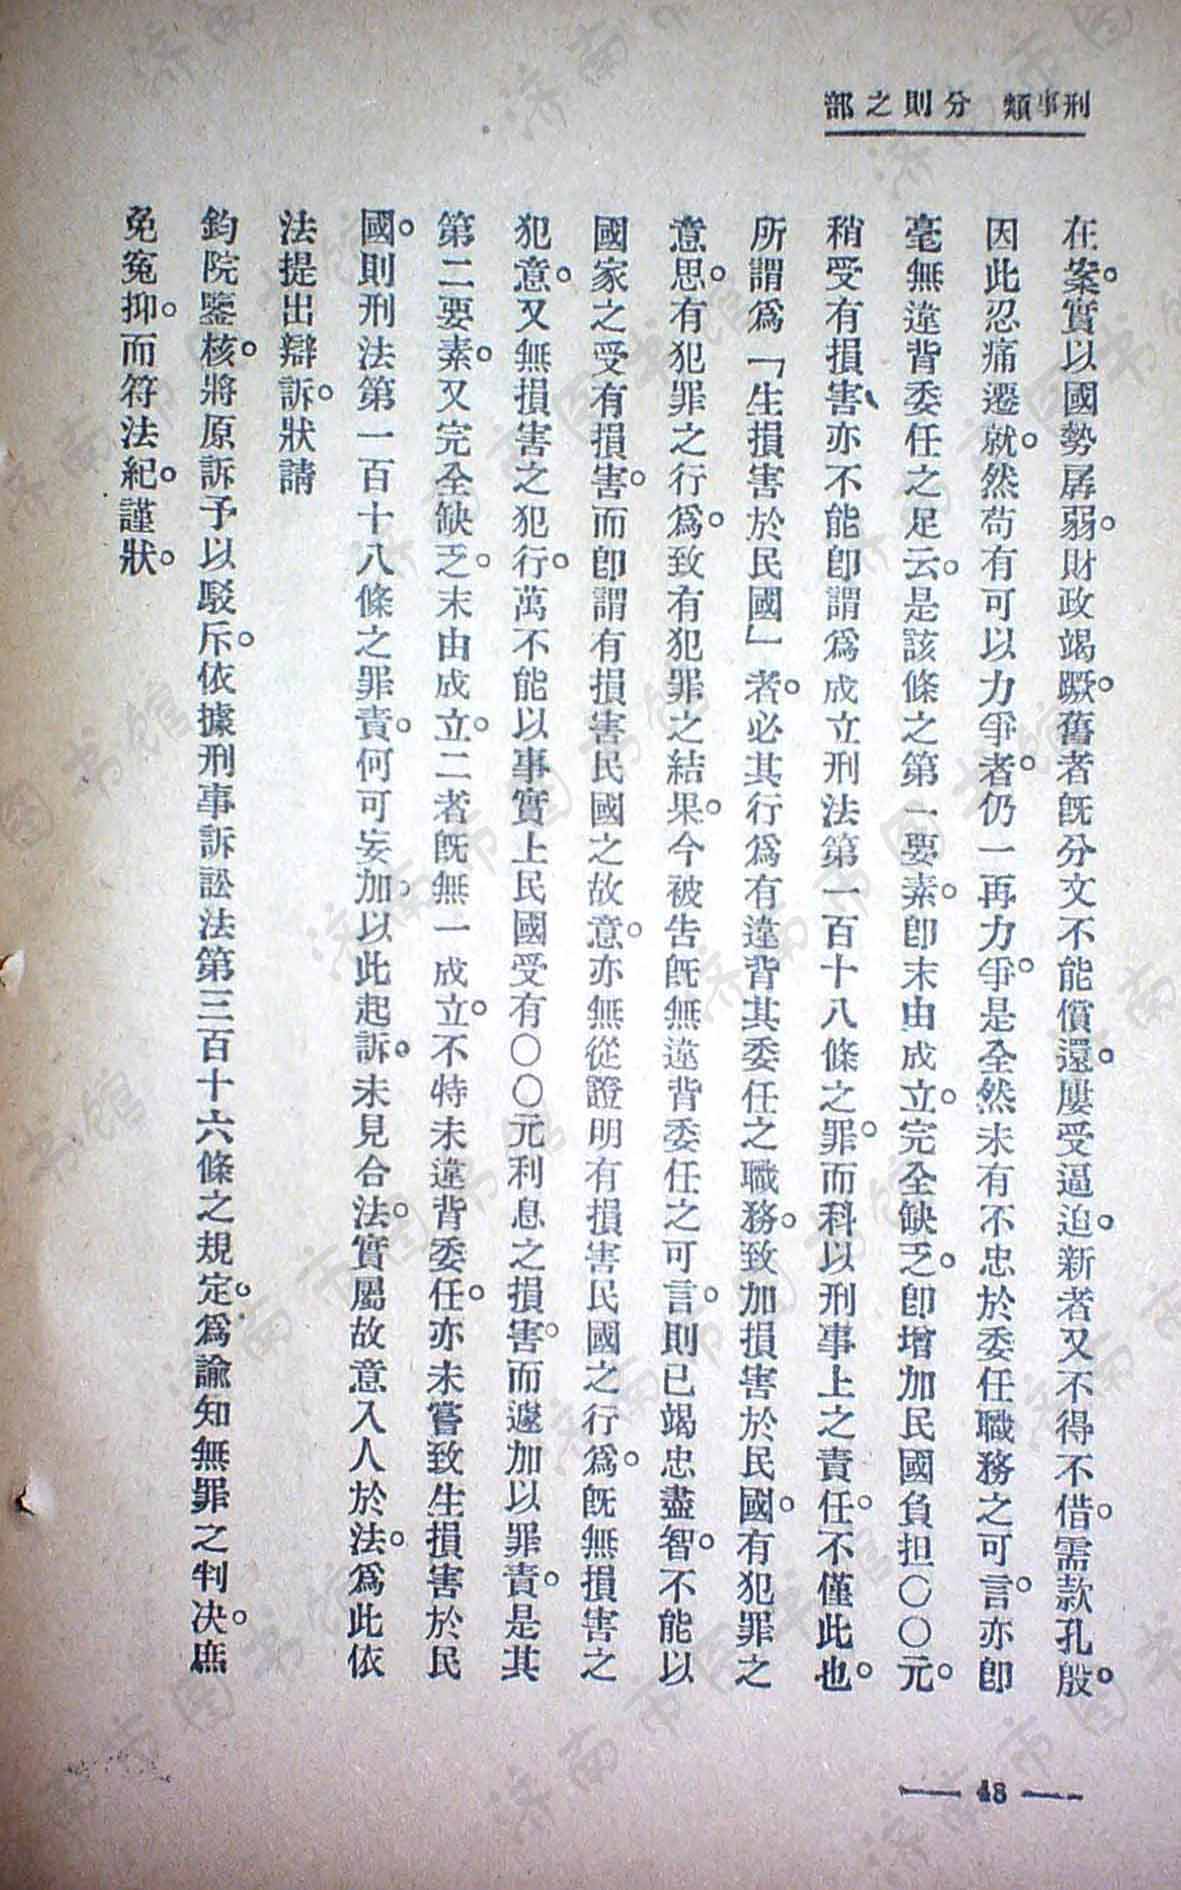 刑事類 分則之部
在案。實以國勢孱弱。財政竭蹶。舊者旣分文不能償還。屢受逼迫。新者又不得不借。需款孔殷。
因此忍痛遷就。然苟有可以力爭者。仍一再力爭。是全然未有不忠於委任職務之可言。亦卽
毫無違背委任之足云。是該條之第一要素。卽末由成立。完全缺乏。卽增加民國負担〇〇元。
稍受有損害、亦不能卽謂爲成立刑法第一百十八條之罪。而科以刑事上之責任。不僅此也。
所謂爲「生損害於民國」者。必其行爲有違背其委任之職務。致加損害於民國。有犯罪之
意思。有犯罪之行爲。致有犯罪之結果。今被告旣無違背委任之可言。則已竭忠盡智。不能以
國家之受有損害。而卽謂有損害民國之故意。亦無從證明有損害民國之行爲。旣無損害之
犯意。又無損害之犯行。萬不能以事實上民國受有〇〇元利息之損害。而遽加以罪責。是其
第二要素。又完全缺乏。末由成立。二者旣無一成立。不特未違背委任。亦未嘗致生損害於民
國。則刑法第一百十八條之罪責。何可妄加。以此起訴。未見合法。實屬故意入人於法。爲此依
法提出辯訴。狀請
鈞院鑒核。將原訴予以駁斥。依據刑事訴訟法第三百十六條之規定。爲諭知無罪之判決。庶
免冤抑。而符法紀。謹狀。
— 48 —
济南市图书馆